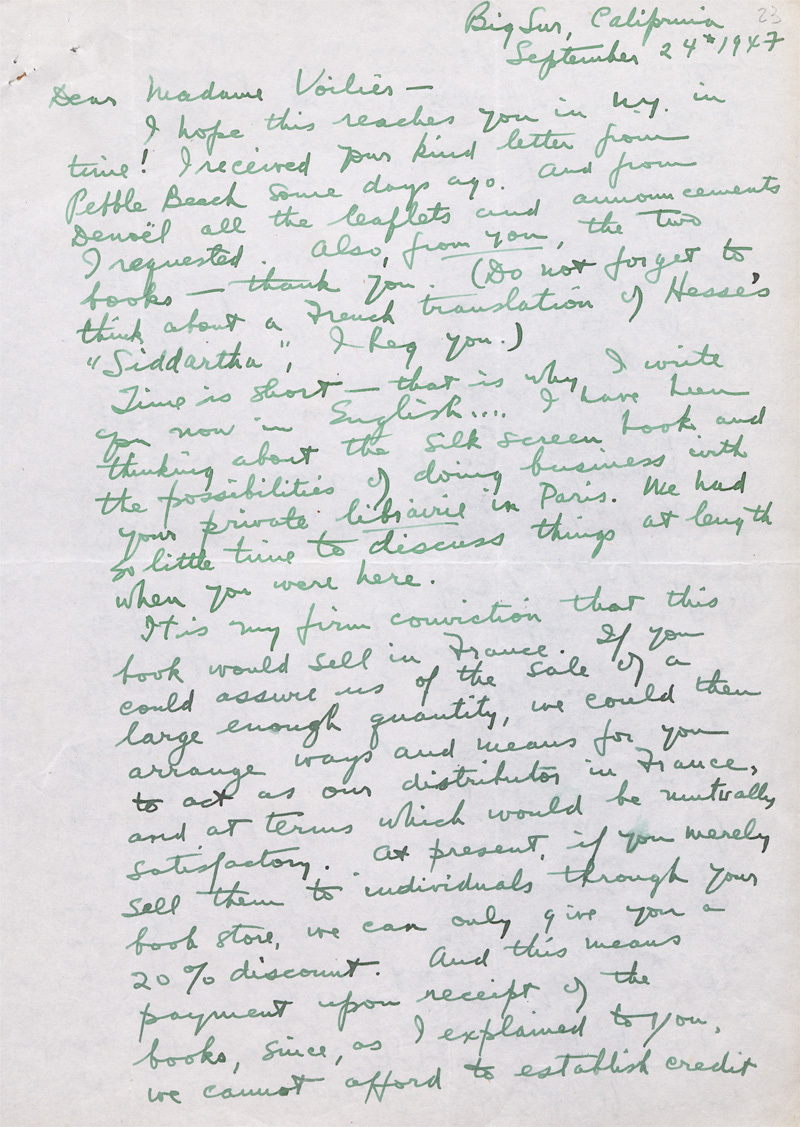 23
Big Sur, California
September 24th 1947
Dear Madame Voilier —
I hope this reaches you in N.Y. in
time! I received your kind letter from
Pebble Beach some days ago. And from
Denoël all the leaflets and announcements
I requested. Also, from you, the two
books — thank you. (Do not forget to
think about a French translation of Hesse's
"Siddartha", I beg you.)
Time is short — that is why I write
you now in English.... I have been
thinking about the silk screen book and
the possibilities of doing business with
your private librairie in Paris. We had
so little time to discuss things at length
when you were here.
It is my firm conviction that this
book would sell in France. If you
could assure us of the sale of a
large enough quantity, we could then
arrange ways and means for you
to act as our distributor in France,
and at terms which would be mutually
satisfactory. At present, if you merely
sell them to individuals through your
book store, we can only give you a
20% discount. And this means
payment upon receipt of the
books, since, as I explained to you,
we cannot afford to establish credit